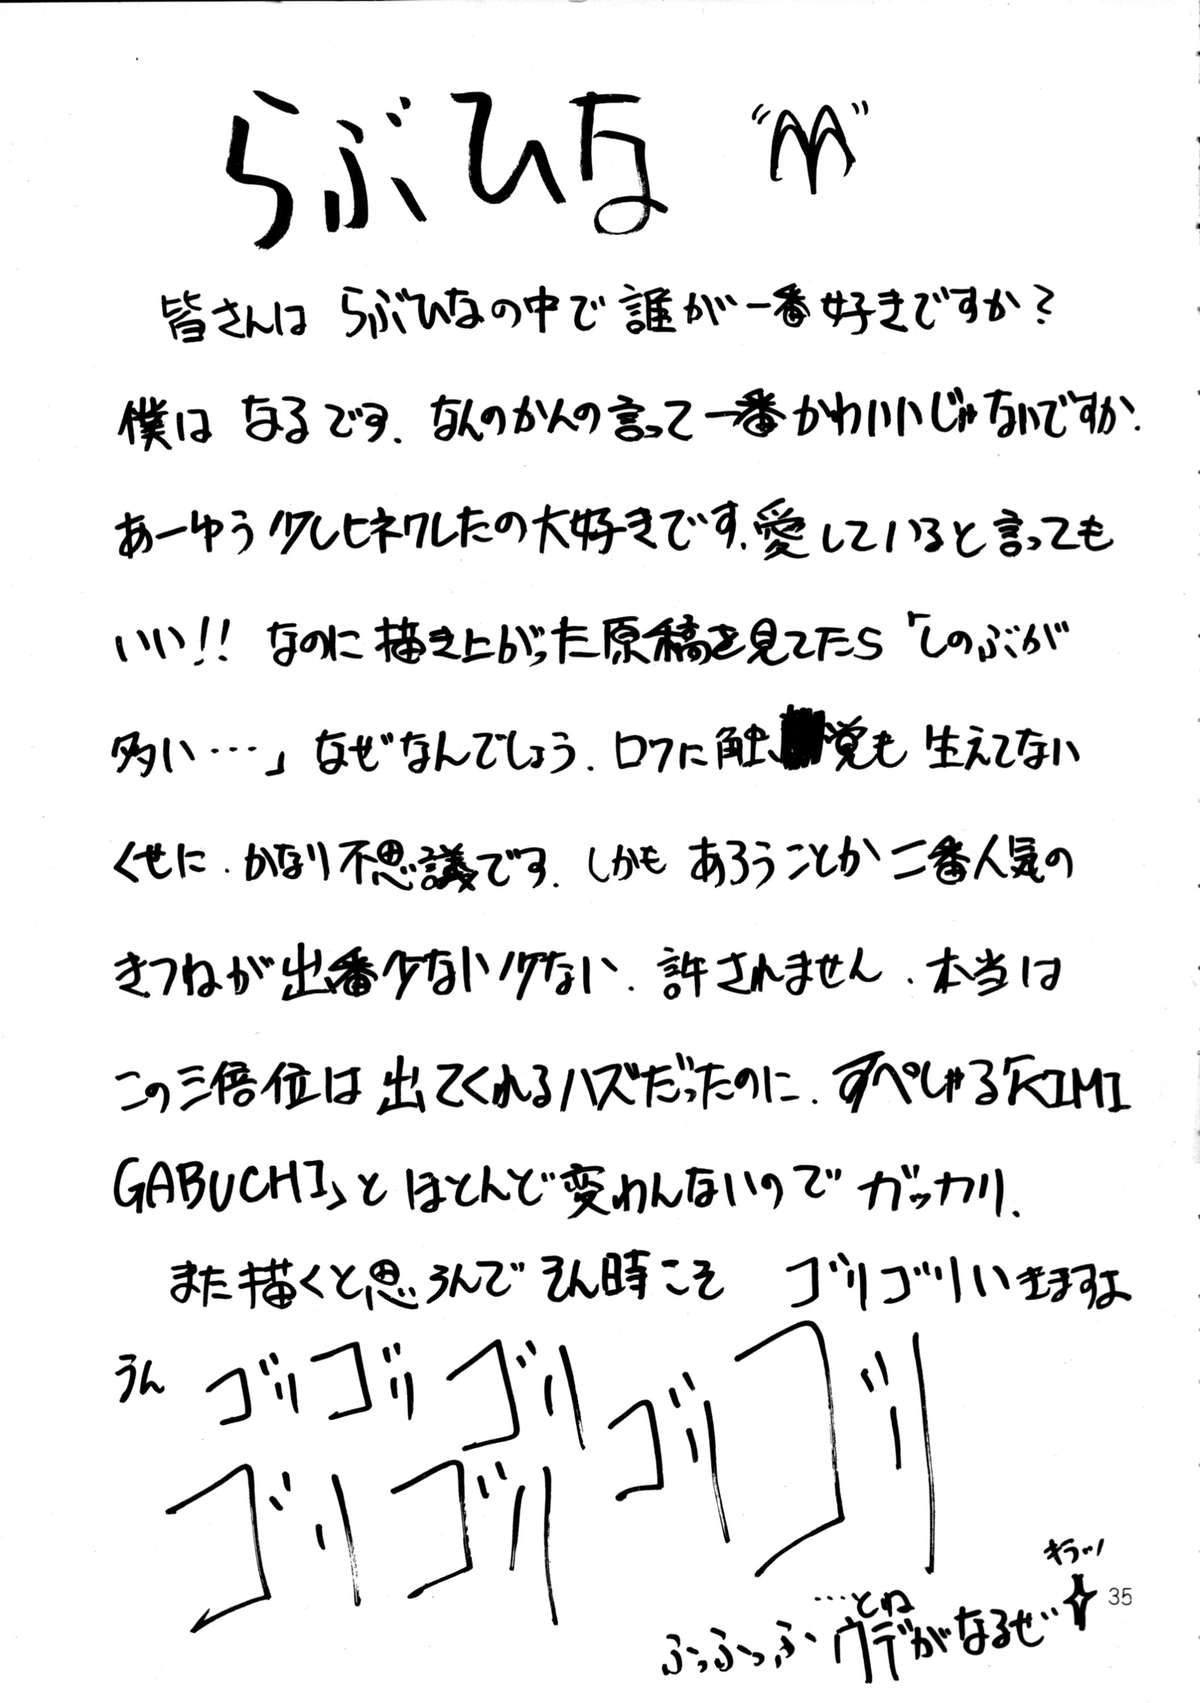 らぶひな
皆さんは らぶひなの中で 誰が 一番 好きですか?
僕は なるです. なんのかんの言って 一番かわいいじゃないですか.
あーゆう少しヒネクレたの大好きです.愛していると言っても
いい!! なのに描き上がった原稿を見てたら「しのぶが
多い…」なぜなんでしょう. ロクに触覚も 生えてない
くせに. かなり不思議です. しかも あろうことか 二番人気の
きつねが出番少ない少ない. 許されません. 本当は
この三倍位は 出てくれるハズだったのに. すぺしゃる「KIMI
GABUCHI」と ほとんど変わんないので ガッカリ.
また描くと思うんで そん時こそ ゴリゴリいきますよ
うん ゴリ ゴリ ゴリ ゴリ ゴリ
ゴリ ゴリ
キラッ
…とね
ふっふっふ ウデがなるぜ
35